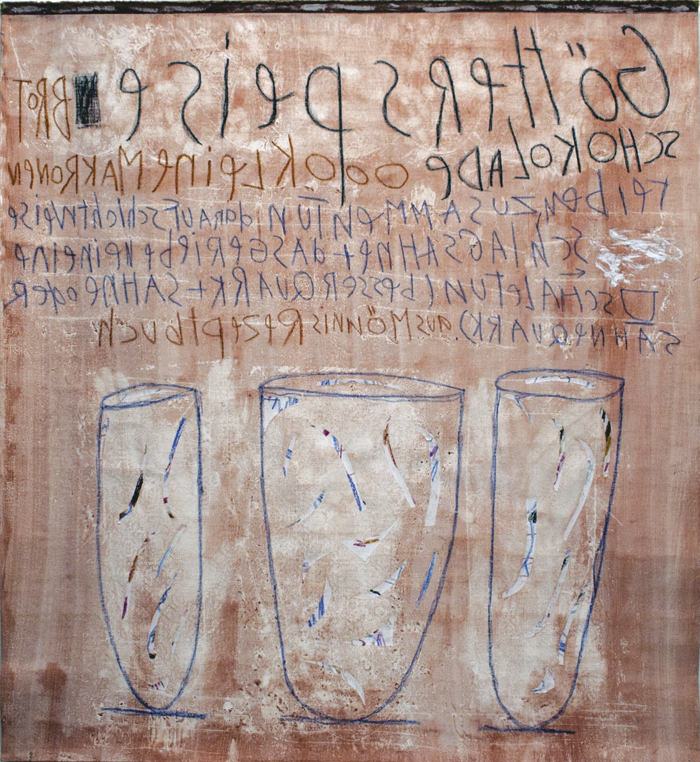 Götterspeise BROT
SCHOKOLADe KLeiNeMAKRONeN
reibenZUSAMMeNTUNdaraufschichtweise
SCHLAGSAHNe+dASGeRIebeNeiNeiNe
SCHALeTUN(besserQUARK+SAHNeoder
SAHNeQUARK).ausMÖNNisRezeptbuch